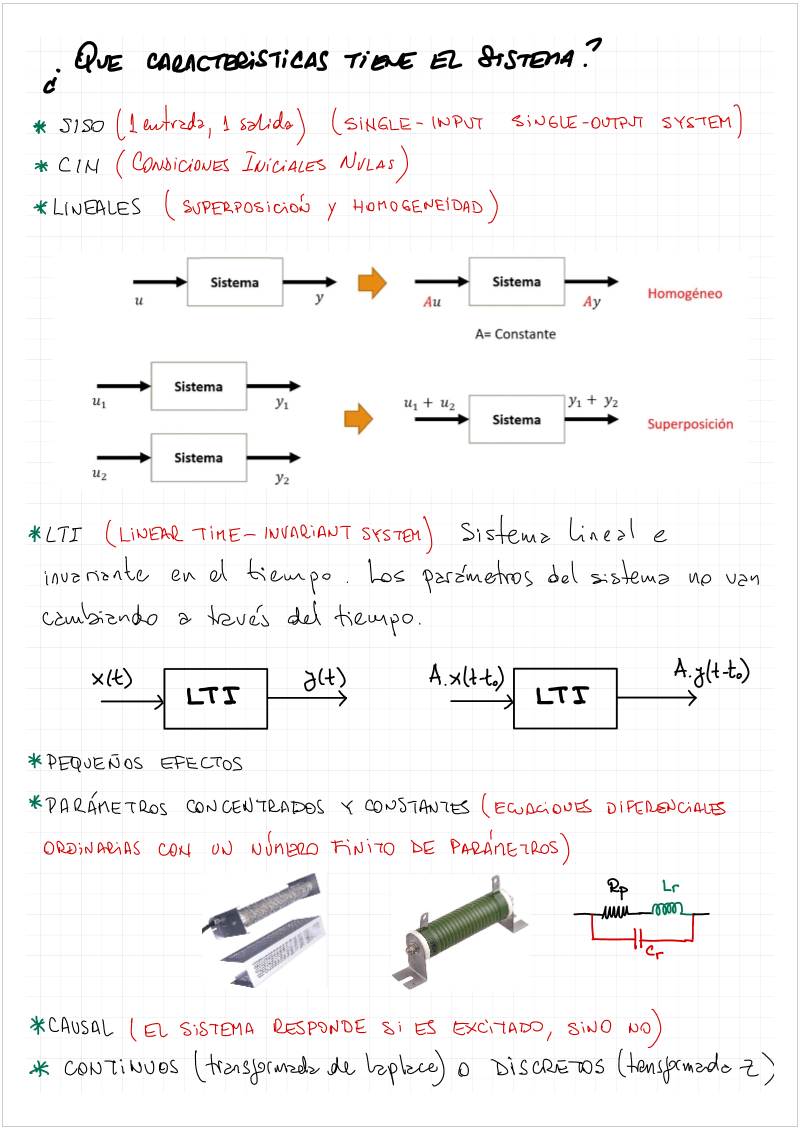 ¿QUE CARACTERISTICAS TIENE EL SISTEMA?
* SISO (1 entrada, 1 salida) (SINGLE-INPUT SINGLE-OUTPUT SYSTEM)
* CIN (CONDICIONES INICIALES NULAS)
* LINEALES (SUPERPOSICIÓN Y HOMOGENEIDAD)
u Sistema y Au Sistema Ay Homogéneo
A= Constante
u₁ Sistema y₁
u₁ + u₂ Sistema y₁ + y₂ Superposición
u₂ Sistema y₂
* LTI (LINEAR TIME-INVARIANT SYSTEM) Sistema lineal e
invariante en el tiempo. Los parámetros del sistema no van
cambiando a través del tiempo.
x(t) LTI y(t) A.x(t-t₀) LTI A.y(t-t₀)
* PEQUEÑOS EFECTOS
* PARÁMETROS CONCENTRADOS Y CONSTANTES (ECUACIONES DIFERENCIALES
ORDINARIAS CON UN NÚMERO FINITO DE PARÁMETROS)
Rp Lr
Cr
* CAUSAL (EL SISTEMA RESPONDE SI ES EXCITADO, SINO NO)
* CONTINUOS (transformada de laplace) O DISCRETOS (transformada Z)